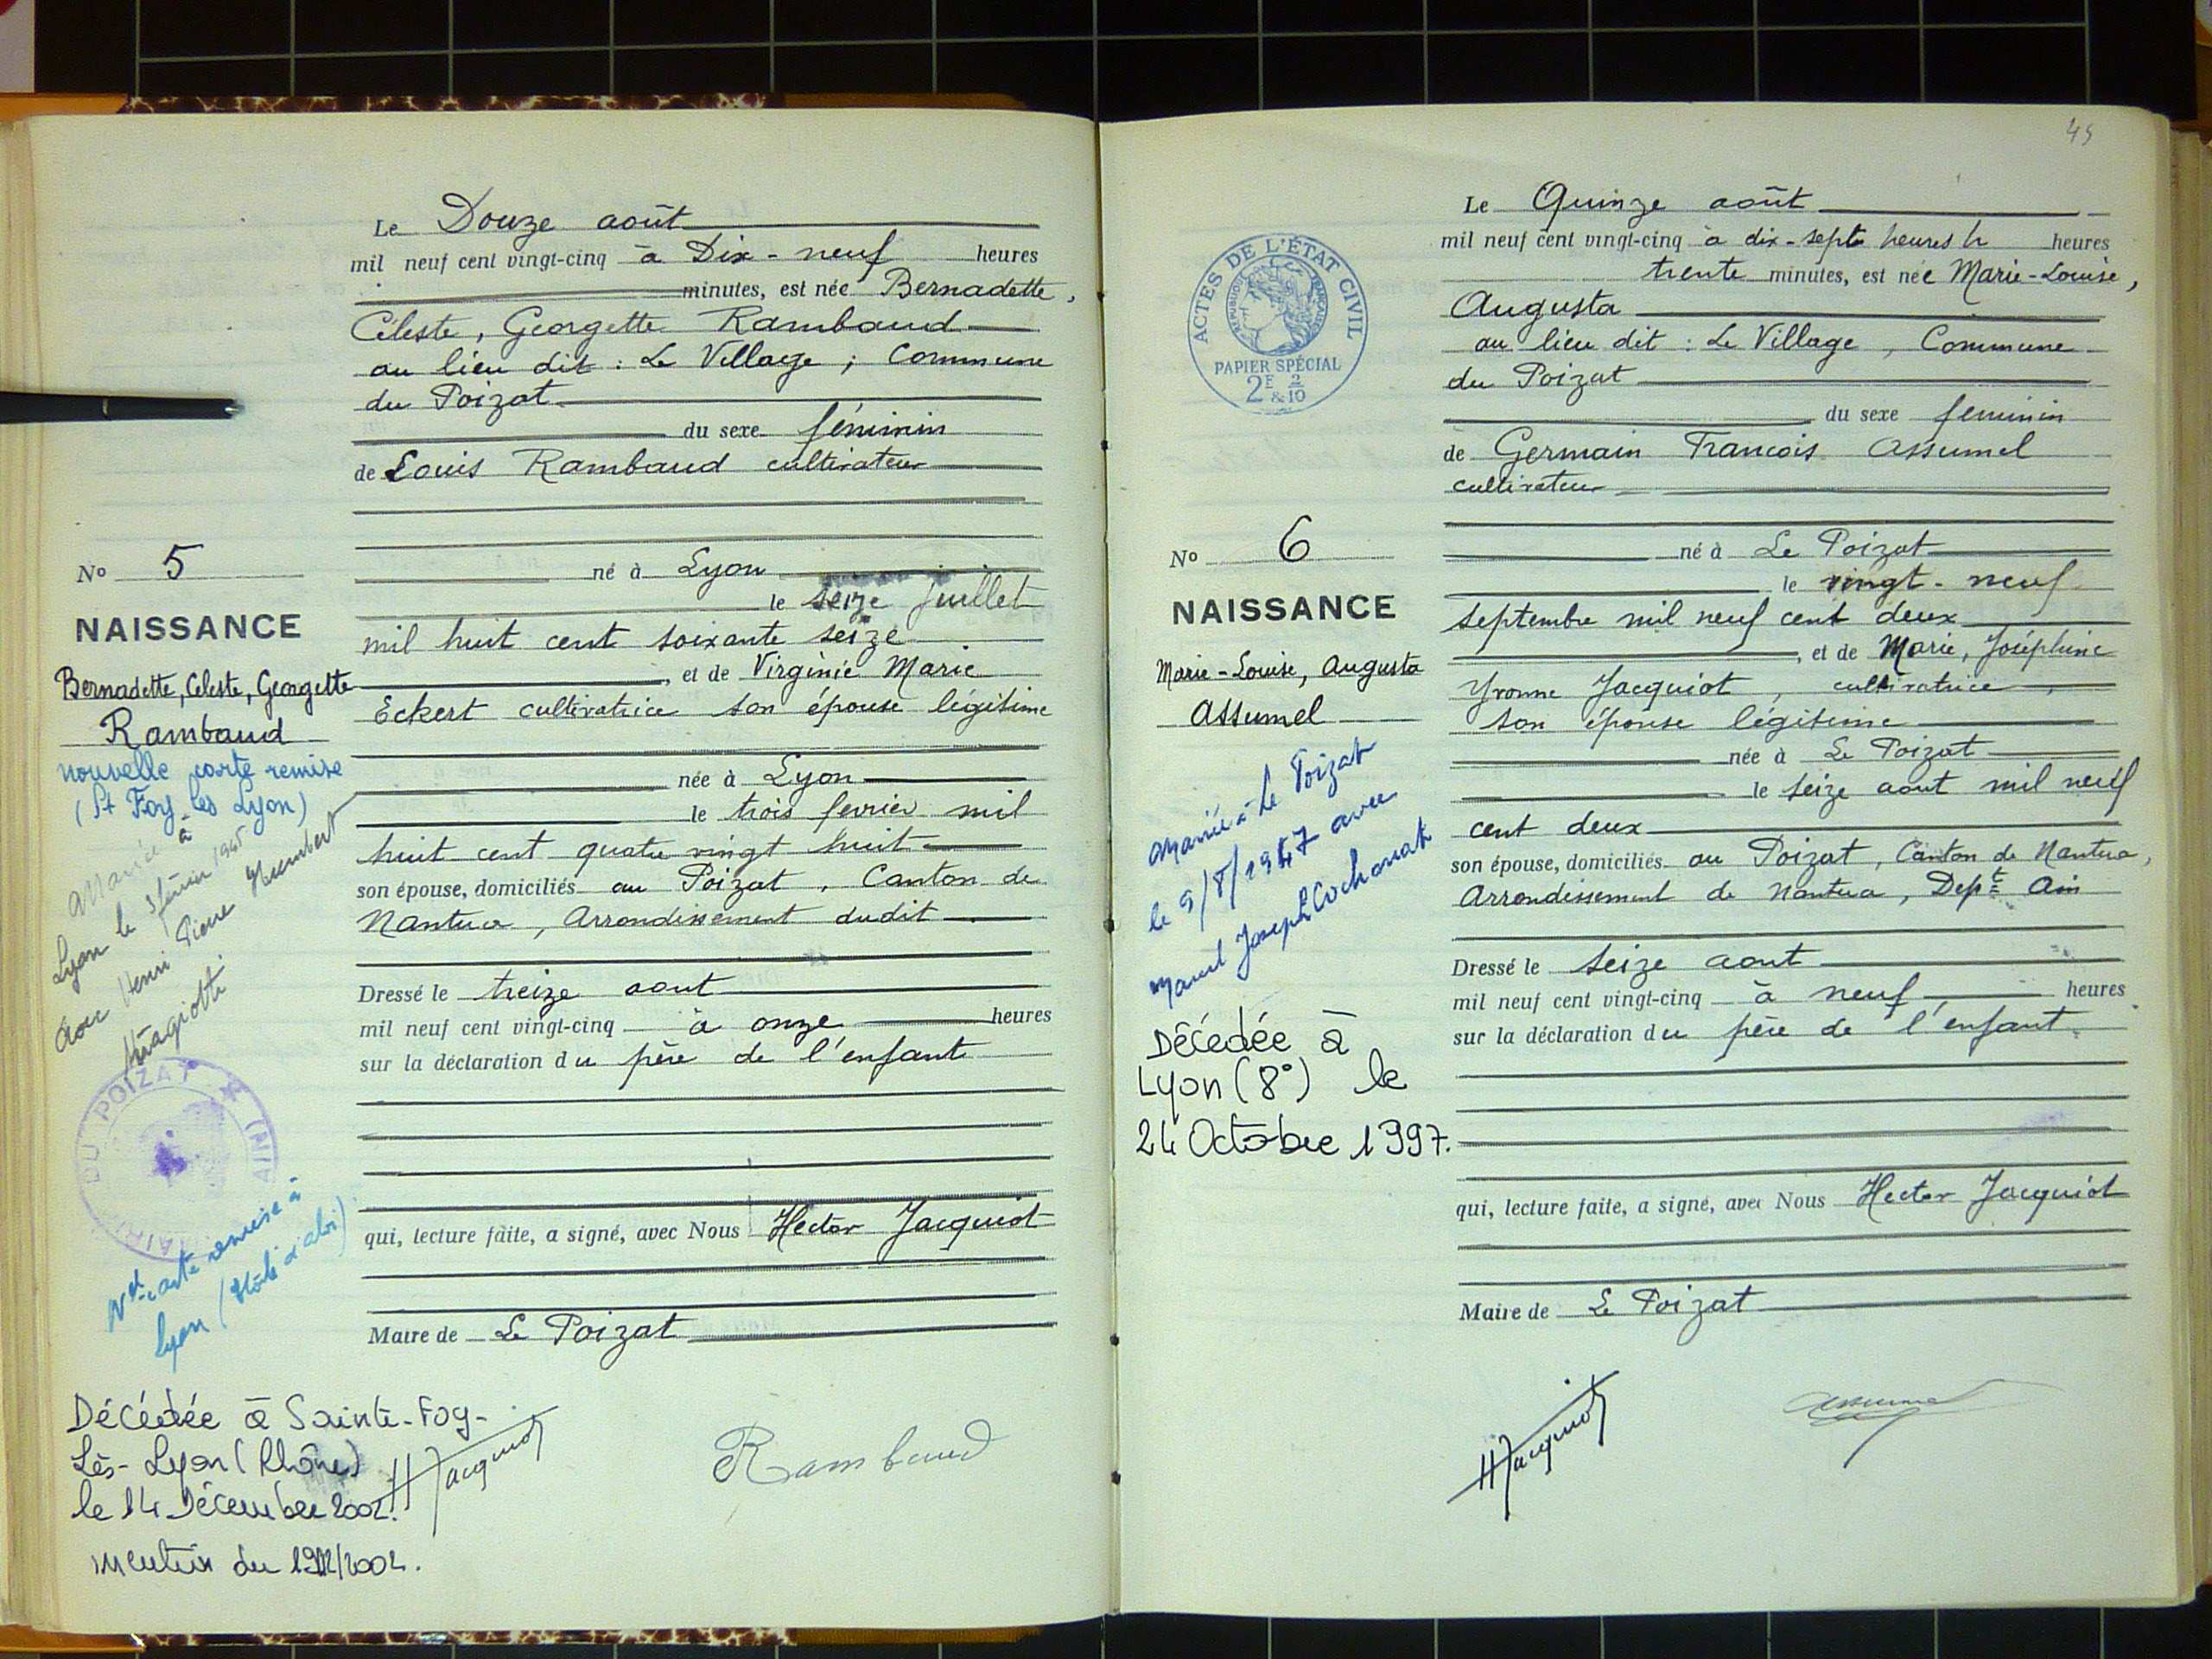 Le Douze août
mil neuf cent vingt-cinq à Dix-neuf heures
minutes, est née Bernadette,
Céleste, Georgette Rambaud
au lieu dit : Le Village ; Commune
du Poizat
du sexe féminin
de Louis Rambaud cultivateur
né à Lyon
le seize juillet
mil huit cent soixante seize
, et de Virginie Marie
Eckert cultivatrice son épouse légitime
née à Lyon
le trois fevrier mil
huit cent quatre vingt huit
son épouse, domiciliés au Poizat, Canton de
Nantua, Arrondissement dudit
Dressé le treize aout
mil neuf cent vingt-cinq à onze heures
sur la déclaration du père de l'enfant
qui, lecture faite, a signé, avec Nous Hector Jacquiot
Maire de Le Poizat
HJacquiot
Rambaud
No 5
NAISSANCE
Bernadette, Céleste, Georgette
Rambaud
nouvelle carte remise
(St Foy-les Lyon)
Mariée à
Lyon le 3 février 1945
avec Henri Pierre Humbert
DU POIZAT
(AIN)
carte remise à
Lyon
Décédée à Sainte-Foy-
Lès-Lyon (Rhône)
le 14 Décembre 2002.
mention du
45
ACTES DE L'ÉTAT CIVIL
RÉPUBLIQUE FRANÇAISE
PAPIER SPÉCIAL
2E & 2/10
Le Quinze août
mil neuf cent vingt-cinq à dix-sept heures h heures
trente minutes, est née Marie-Louise,
Augusta
au lieu dit : Le Village, Commune
du Poizat
du sexe féminin
de Germain Francois Assumel
cultivateur
né à Le Poizat
le vingt-neuf
septembre mil neuf cent deux
, et de Marie, Joséphine
Yvonne Jacquiot, cultivatrice,
son épouse légitime
née à Le Poizat
le seize aout mil neuf
cent deux
son épouse, domiciliés au Poizat, Canton de Nantua,
Arrondissement de Nantua, Dept Ain
Dressé le seize aout
mil neuf cent vingt-cinq à neuf heures
sur la déclaration du père de l'enfant
qui, lecture faite, a signé, avec Nous Hector Jacquiot
Maire de Le Poizat
HJacquiot
Assumel
No 6
NAISSANCE
Marie-Louise, Augusta
Assumel
Mariée à Le Poizat
le 9/8/1947 avec
Marcel Joseph Cochonat
Décédée à
Lyon (8°) le
24 Octobre 1997.